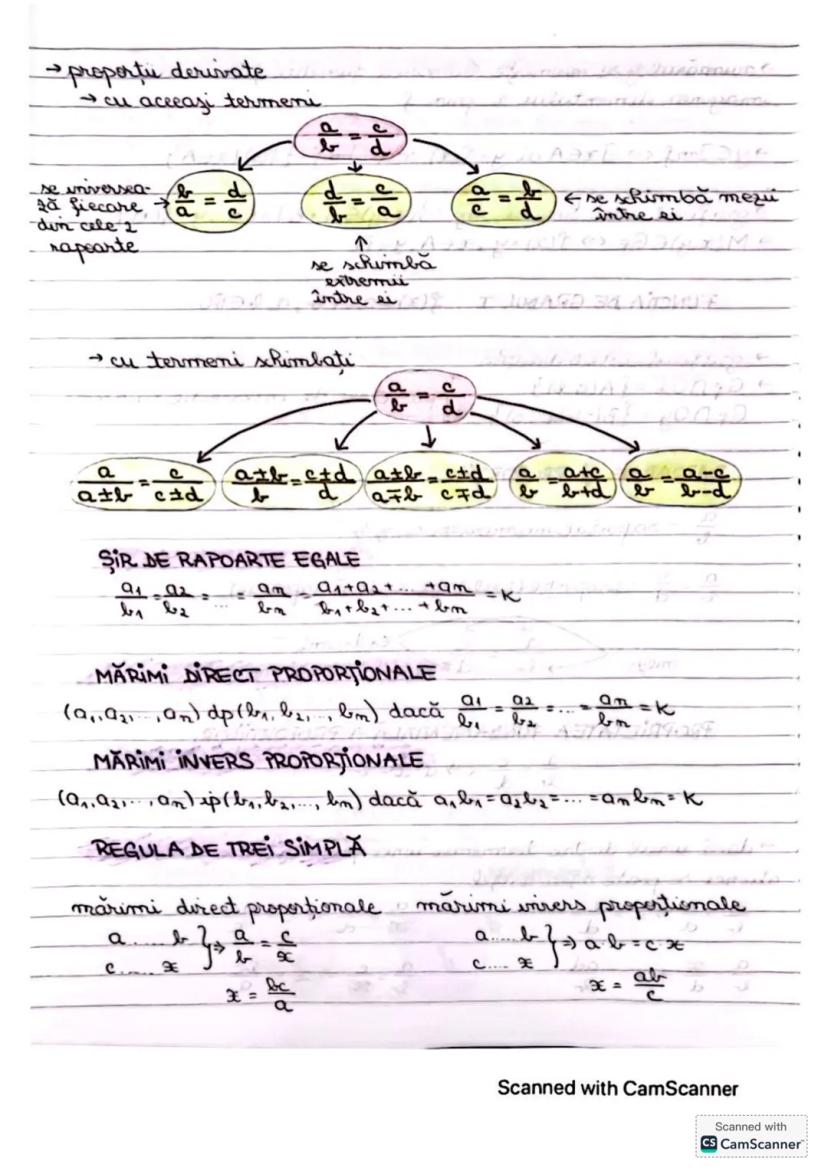 → proporții derivate
→ cu aceeași termeni
a/b = c/d
se inversea-
ză fiecare
din cele 2
rapoarte
→ b/a = d/c
d/b = c/a
a/c = b/d
← se schimbă mezii
între ei
↑
se schimbă
extremii
între ei
→ cu termeni schimbați
a/b = c/d
a/a±b = c/c±d
a±b/b = c±d/d
a±b/a∓b = c±d/c∓d
a/b = a+c/b+d
a/b = a-c/b-d
ȘIR DE RAPOARTE EGALE
a1/b1 = a2/b2 = ... = an/bn = a1+a2+...+an/b1+b2+...+bn = K
MĂRIMI DIRECT PROPORȚIONALE
(a1, a2, ..., an) dp (b1, b2, ..., bn) dacă a1/b1 = a2/b2 = ... = an/bn = K
MĂRIMI INVERS PROPORȚIONALE
(a1, a2, ..., an) ip (b1, b2, ..., bn) dacă a1b1 = a2b2 = ... = anbn = K
REGULA DE TREI SIMPLĂ
mărimi direct proporționale
a.....b
c.....x
} ⇒ a/b = c/x
x = bc/a
mărimi invers proporționale
a.....b
c.....x
} ⇒ a·b = c·x
x = ab/c
Scanned with CamScanner
Scanned with
CS CamScanner